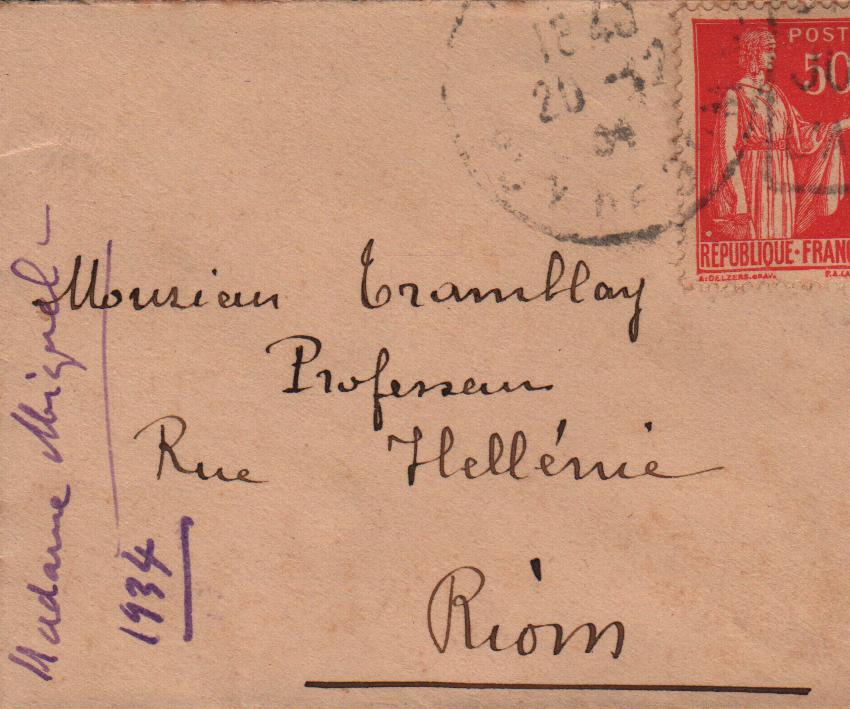 18 40
20 -12
34
POST
50
REPUBLIQUE·FRANÇ
Monsieur Tramblay
Professeur
Rue Hellénie
Riom
Madame Miguel
1934